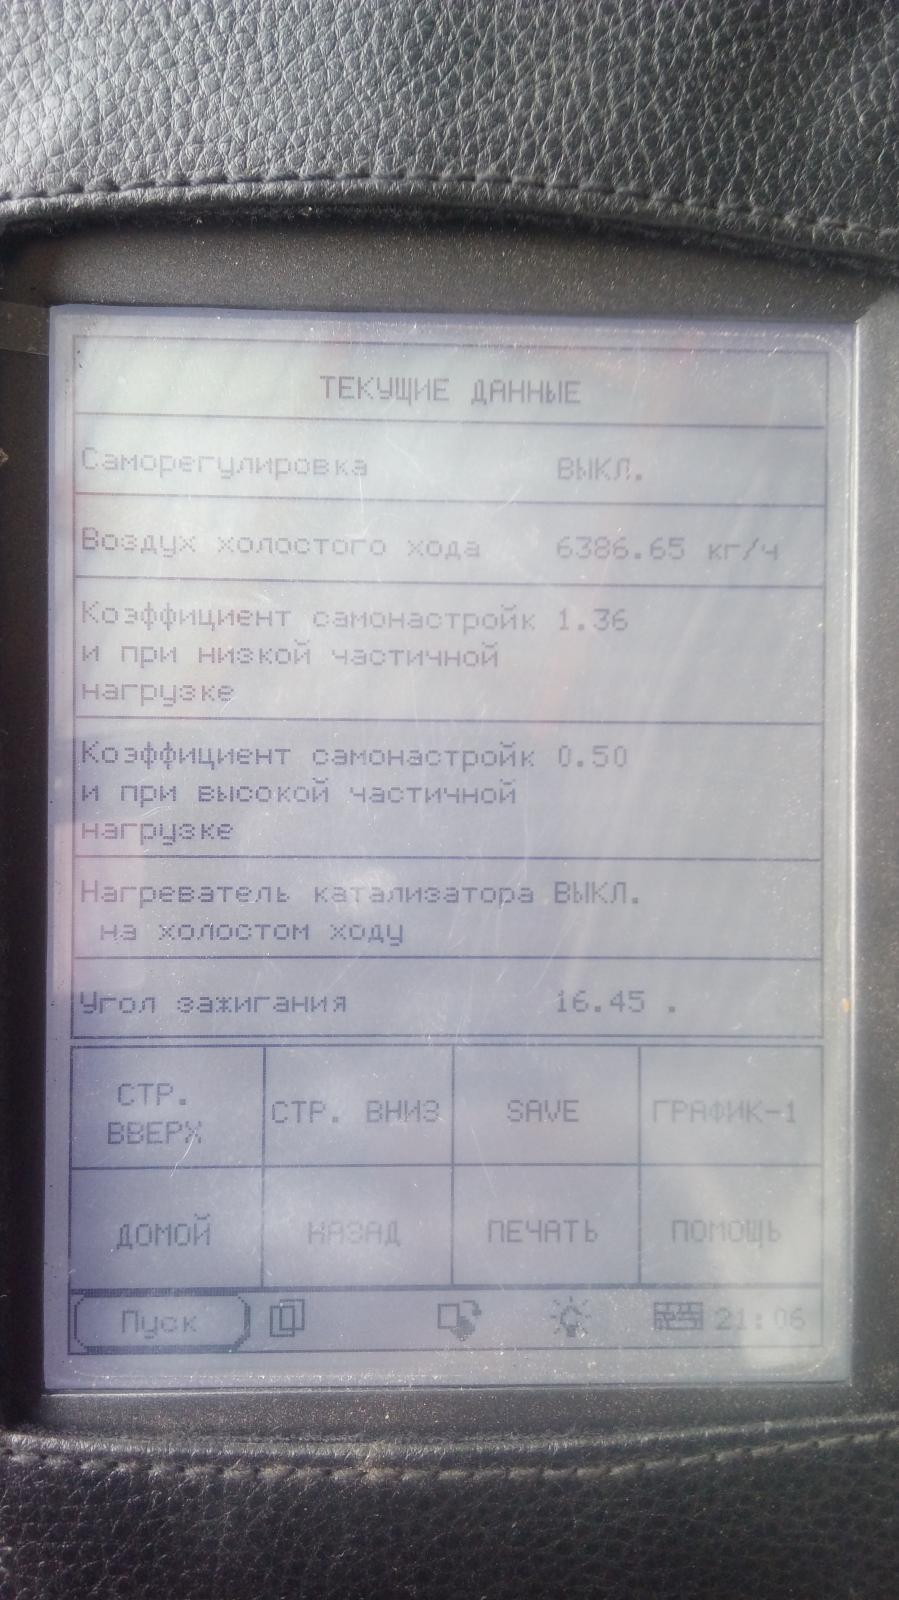 ТЕКУЩИЕ ДАННЫЕ
Саморегулировка ВЫКЛ.
Воздух холостого хода 6386.65 кг/ч
Коэффициент самонастройк 1.36
и при низкой частичной
нагрузке
Коэффициент самонастройк 0.50
и при высокой частичной
нагрузке
Нагреватель катализатора ВЫКЛ.
на холостом ходу
Угол зажигания 16.45 .
СТР. ВВЕРХ
СТР. ВНИЗ
SAVE
ГРАФИК-1
ДОМОЙ
НАЗАД
ПЕЧАТЬ
ПОМОЩЬ
Пуск 21:06